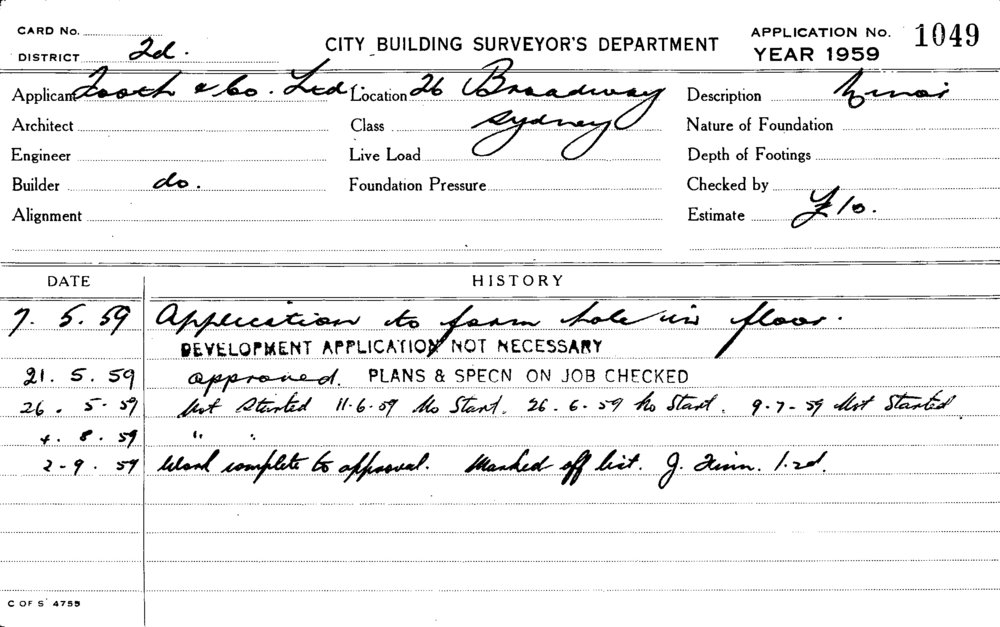 CARD No.
DISTRICT 2d.
CITY BUILDING SURVEYOR'S DEPARTMENT
APPLICATION No. 1049
YEAR 1959
Applicant Tooth & Co. Ltd. Location 26 Broadway Description Minor
Architect Class Sydney Nature of Foundation
Engineer Live Load Depth of Footings
Builder do. Foundation Pressure Checked by
Alignment Estimate £10.
DATE HISTORY
7. 5. 59 Application to form hole in floor.
DEVELOPMENT APPLICATION NOT NECESSARY
21. 5. 59 approved. PLANS & SPECN ON JOB CHECKED
26. 5. 59 Not Started 11-6-59 No Start. 26. 6. 59 No Start. 9-7-59 Not Started
4. 8. 59 " "
2-9. 59 Work complete to approval. Marked off list. J.
C OF S 4755